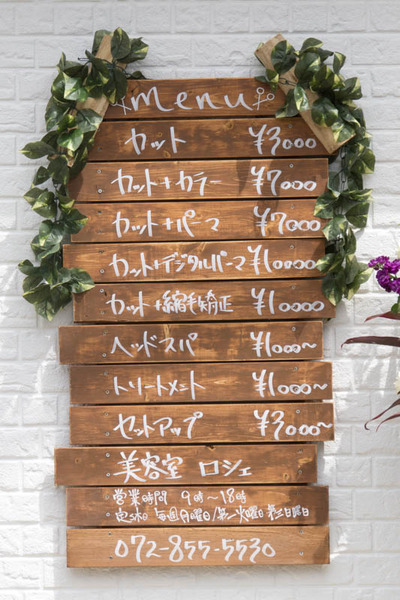 menu
カット ¥3000
カット+カラー ¥7000
カット+パーマ ¥7000
カット+デジタルパーマ ¥10000
カット+縮毛矯正 ¥10000
ヘッドスパ ¥1000~
トリートメント ¥1000~
セットアップ ¥3000~
美容室 ロシェ
営業時間 9時~18時
定休日 毎週月曜日/第一火曜日 第三日曜日
072-855-5530